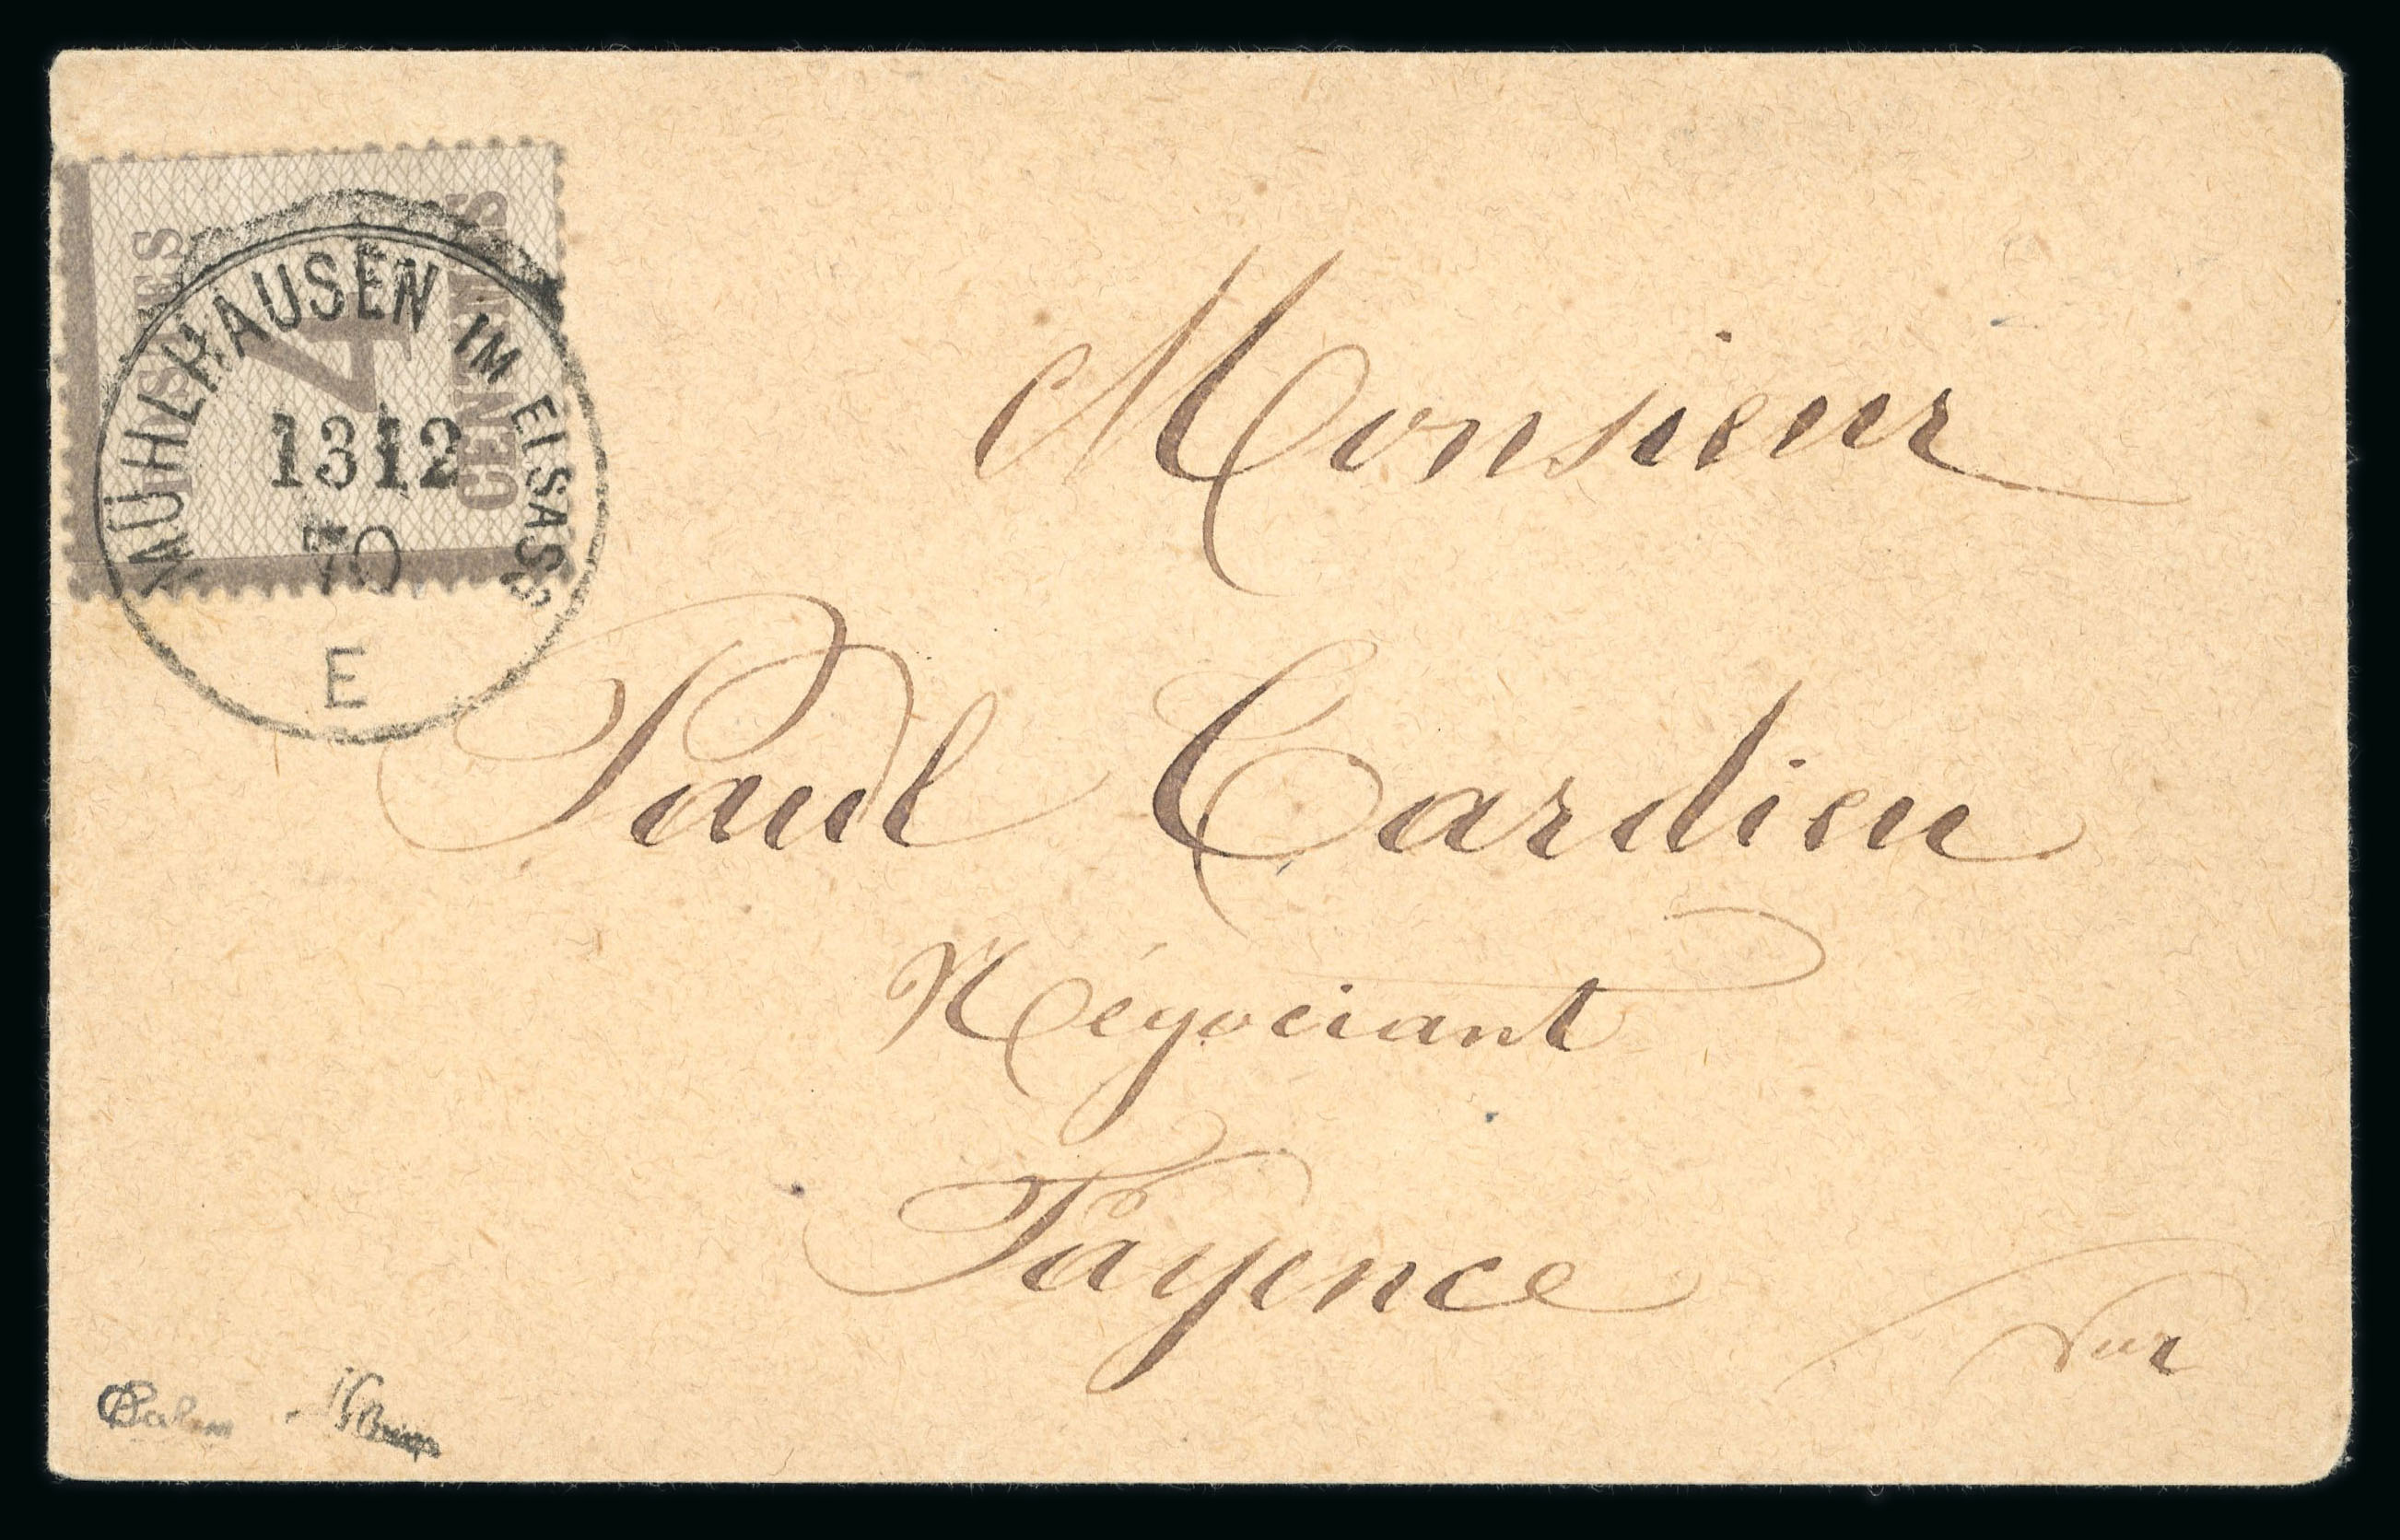 POSTES
4
CENTIMES
MÜHLHAUSEN IM ELSASS
13 12
70
E
Monsieur
Paul Cardieu
Négociant
Fayence
Var
Calves